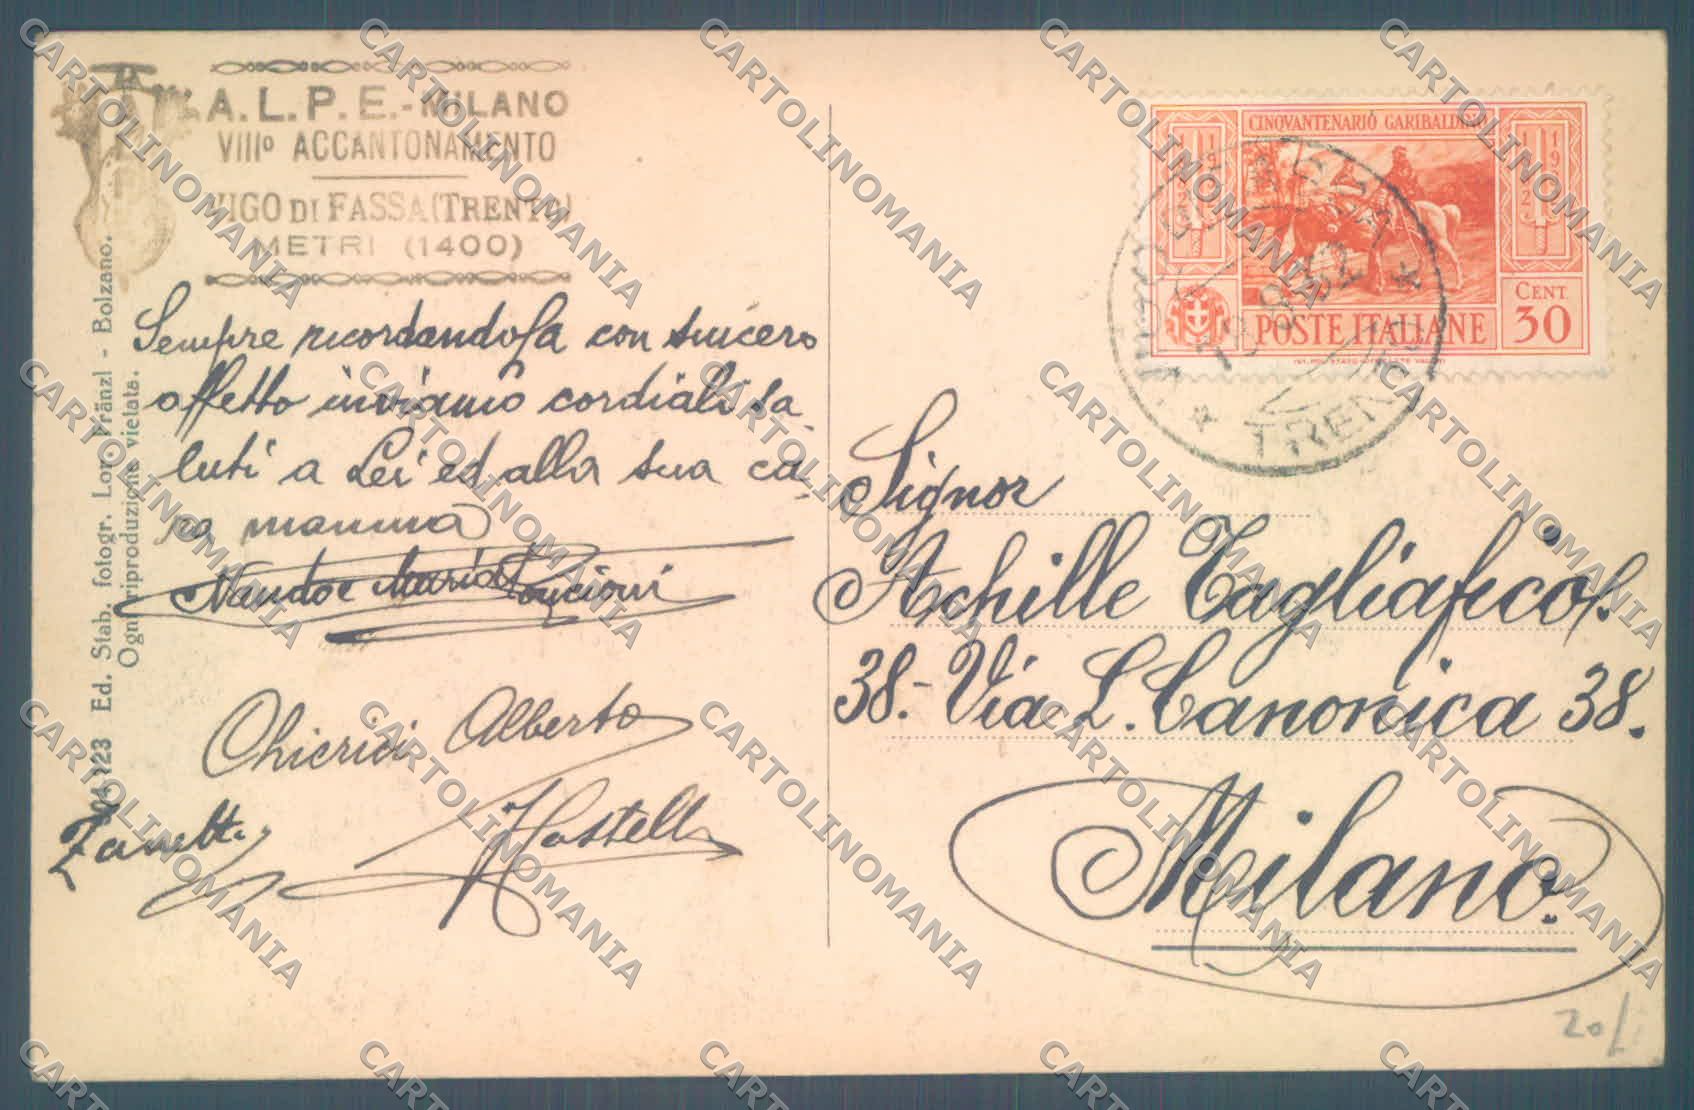 A.L.P.E.-MILANO
VIIIº ACCANTONAMENTO
VIGO DI FASSA (TRENTO)
METRI (1400)
Sempre ricordandola con sincero
affetto inviamo cordiali sa
luti a Lei ed alla sua ca-
ra mamma
Nando e Maria
Chierici Alberto
Zanetti
123 Ed. Stab. fotogr. Lor. Fränzl - Bolzano.
Ogni riproduzione vietata.
CINQVANTENARIO GARIBALDINO
CENT
30
POSTE ITALIANE
8 32
TRENTO
Signor
Achille Tagliafico
38. - Via L. Canonica 38.
Milano.
20
CARTOLINOMANIA